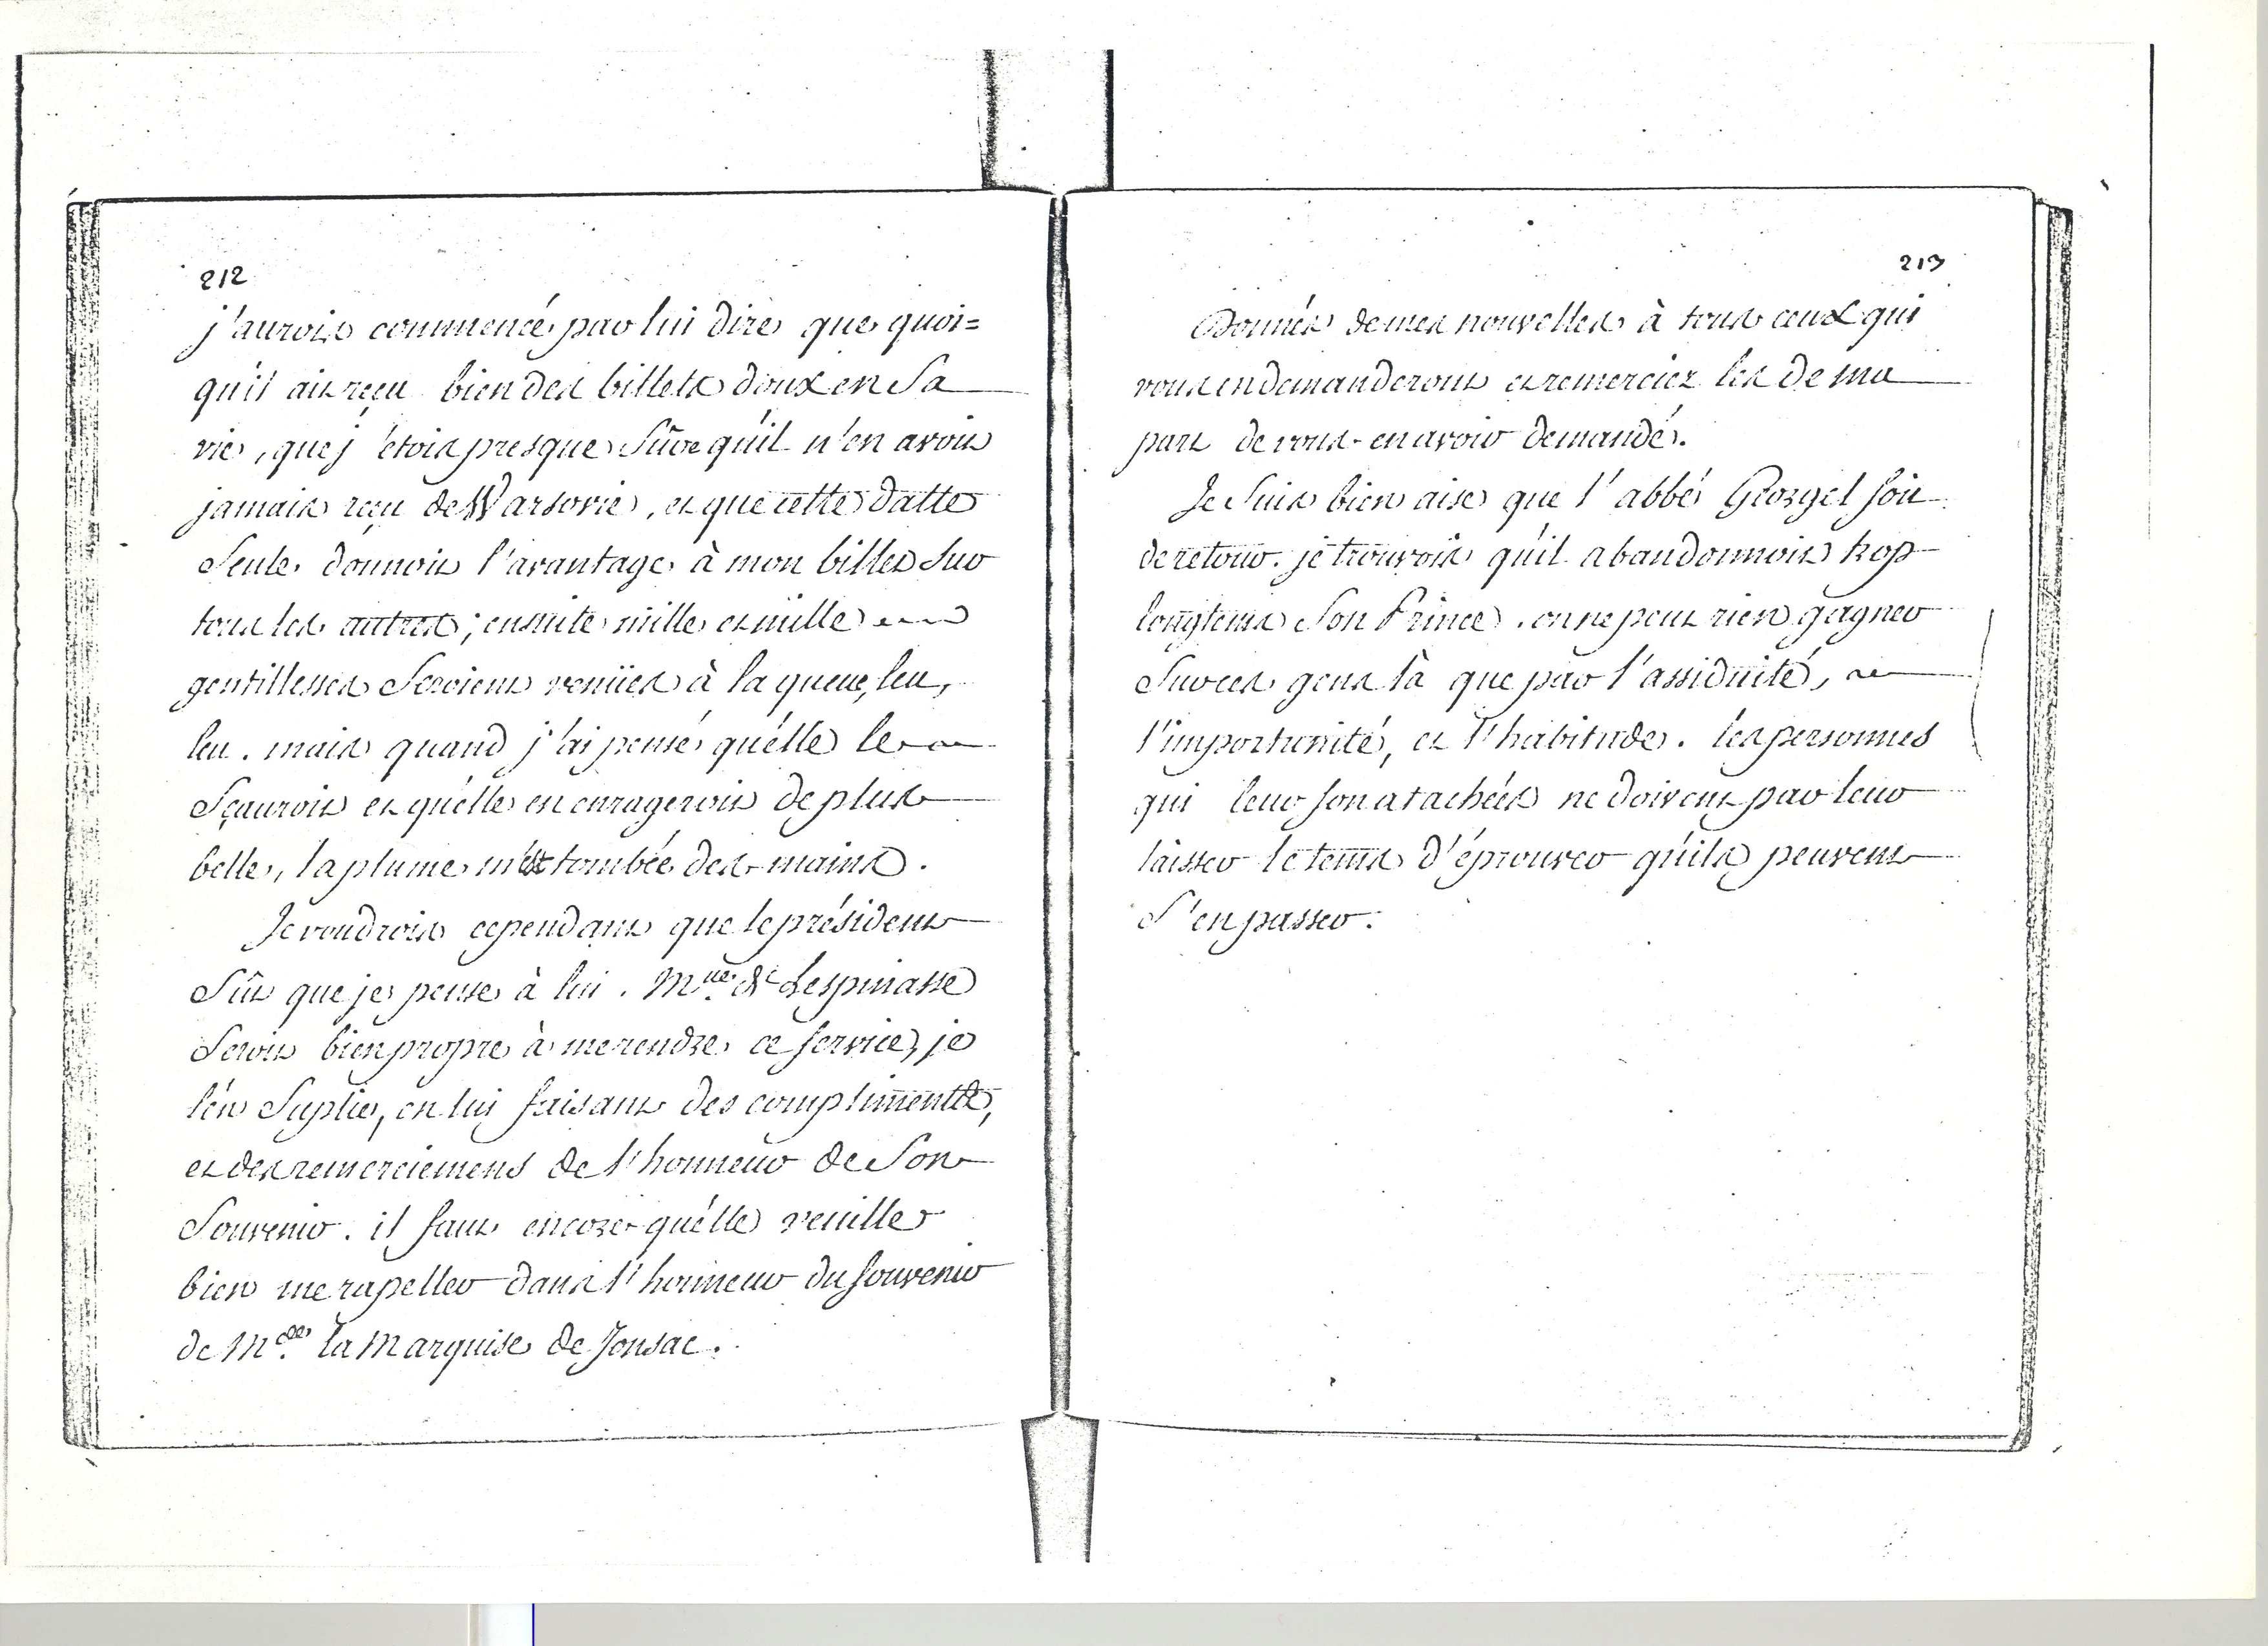 212
j'aurois commencé par lui dire que quoi=
qu'il ait reçu bien des billets doux en Sa
vie, que j'étois presque Sûre qu'il n'en avoit
jamais reçu de Warsovie, et que cette datte
Seule donnoit l'avantage à mon billet Sur
tous les autres; ensuite mille et mille
gentillesses Seroient venües à la queue, leu,
leu. mais quand j'ai pensé qu'élle le
Sçauroit et qu'élle en enrageroit de plus
belle, la plume m'est tombée des mains.
Je voudrois cependant que le président
Sût que je pense à lui. Mlle. de Lespinasse
Seroit bien propre à me rendre ce service, je
l'én Suplie, en lui faisant des compliments,
et des remerciemens de l'honneur de Son
Souvenir. il faut encore qu'élle veuille
bien me rapeller dans l'honneur du souvenir
de Mde. la Marquise de Jonsac.
213
Donnés de mes nouvelles à tous ceux qui
vous en demanderont et remerciez les de ma
part de vous en avoir demandé.
Je Suis bien aise que l'abbé Georgel soit
de retour. je trouvois qu'il abandonnoit trop
longtems Son Prince. on ne peut rien gagner
Sur ces gens là que par l'assiduité,
l'importunité, et l'habitude. les personnes
qui leur son atachées ne doivent pas leur
laisser le tems d'éprouver qu'ils peuvent
S'en passer.